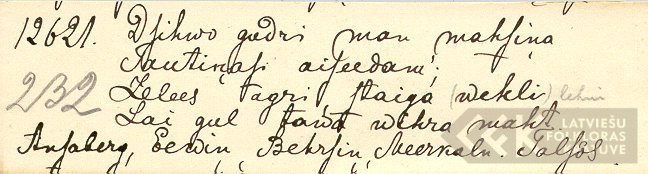 12621. Dsihwo gudri man mahsiņa
Tautiņâsi aiseedam;
232 Zelees agri, staigâ wekli (lehni
Lai gul tawa wihra maht.
Ansaberg, Eewiņ, Behrsiņ, Meerkaln. Talsôs.
LATVIEŠU
FOLKLORAS
KRĀTUVE